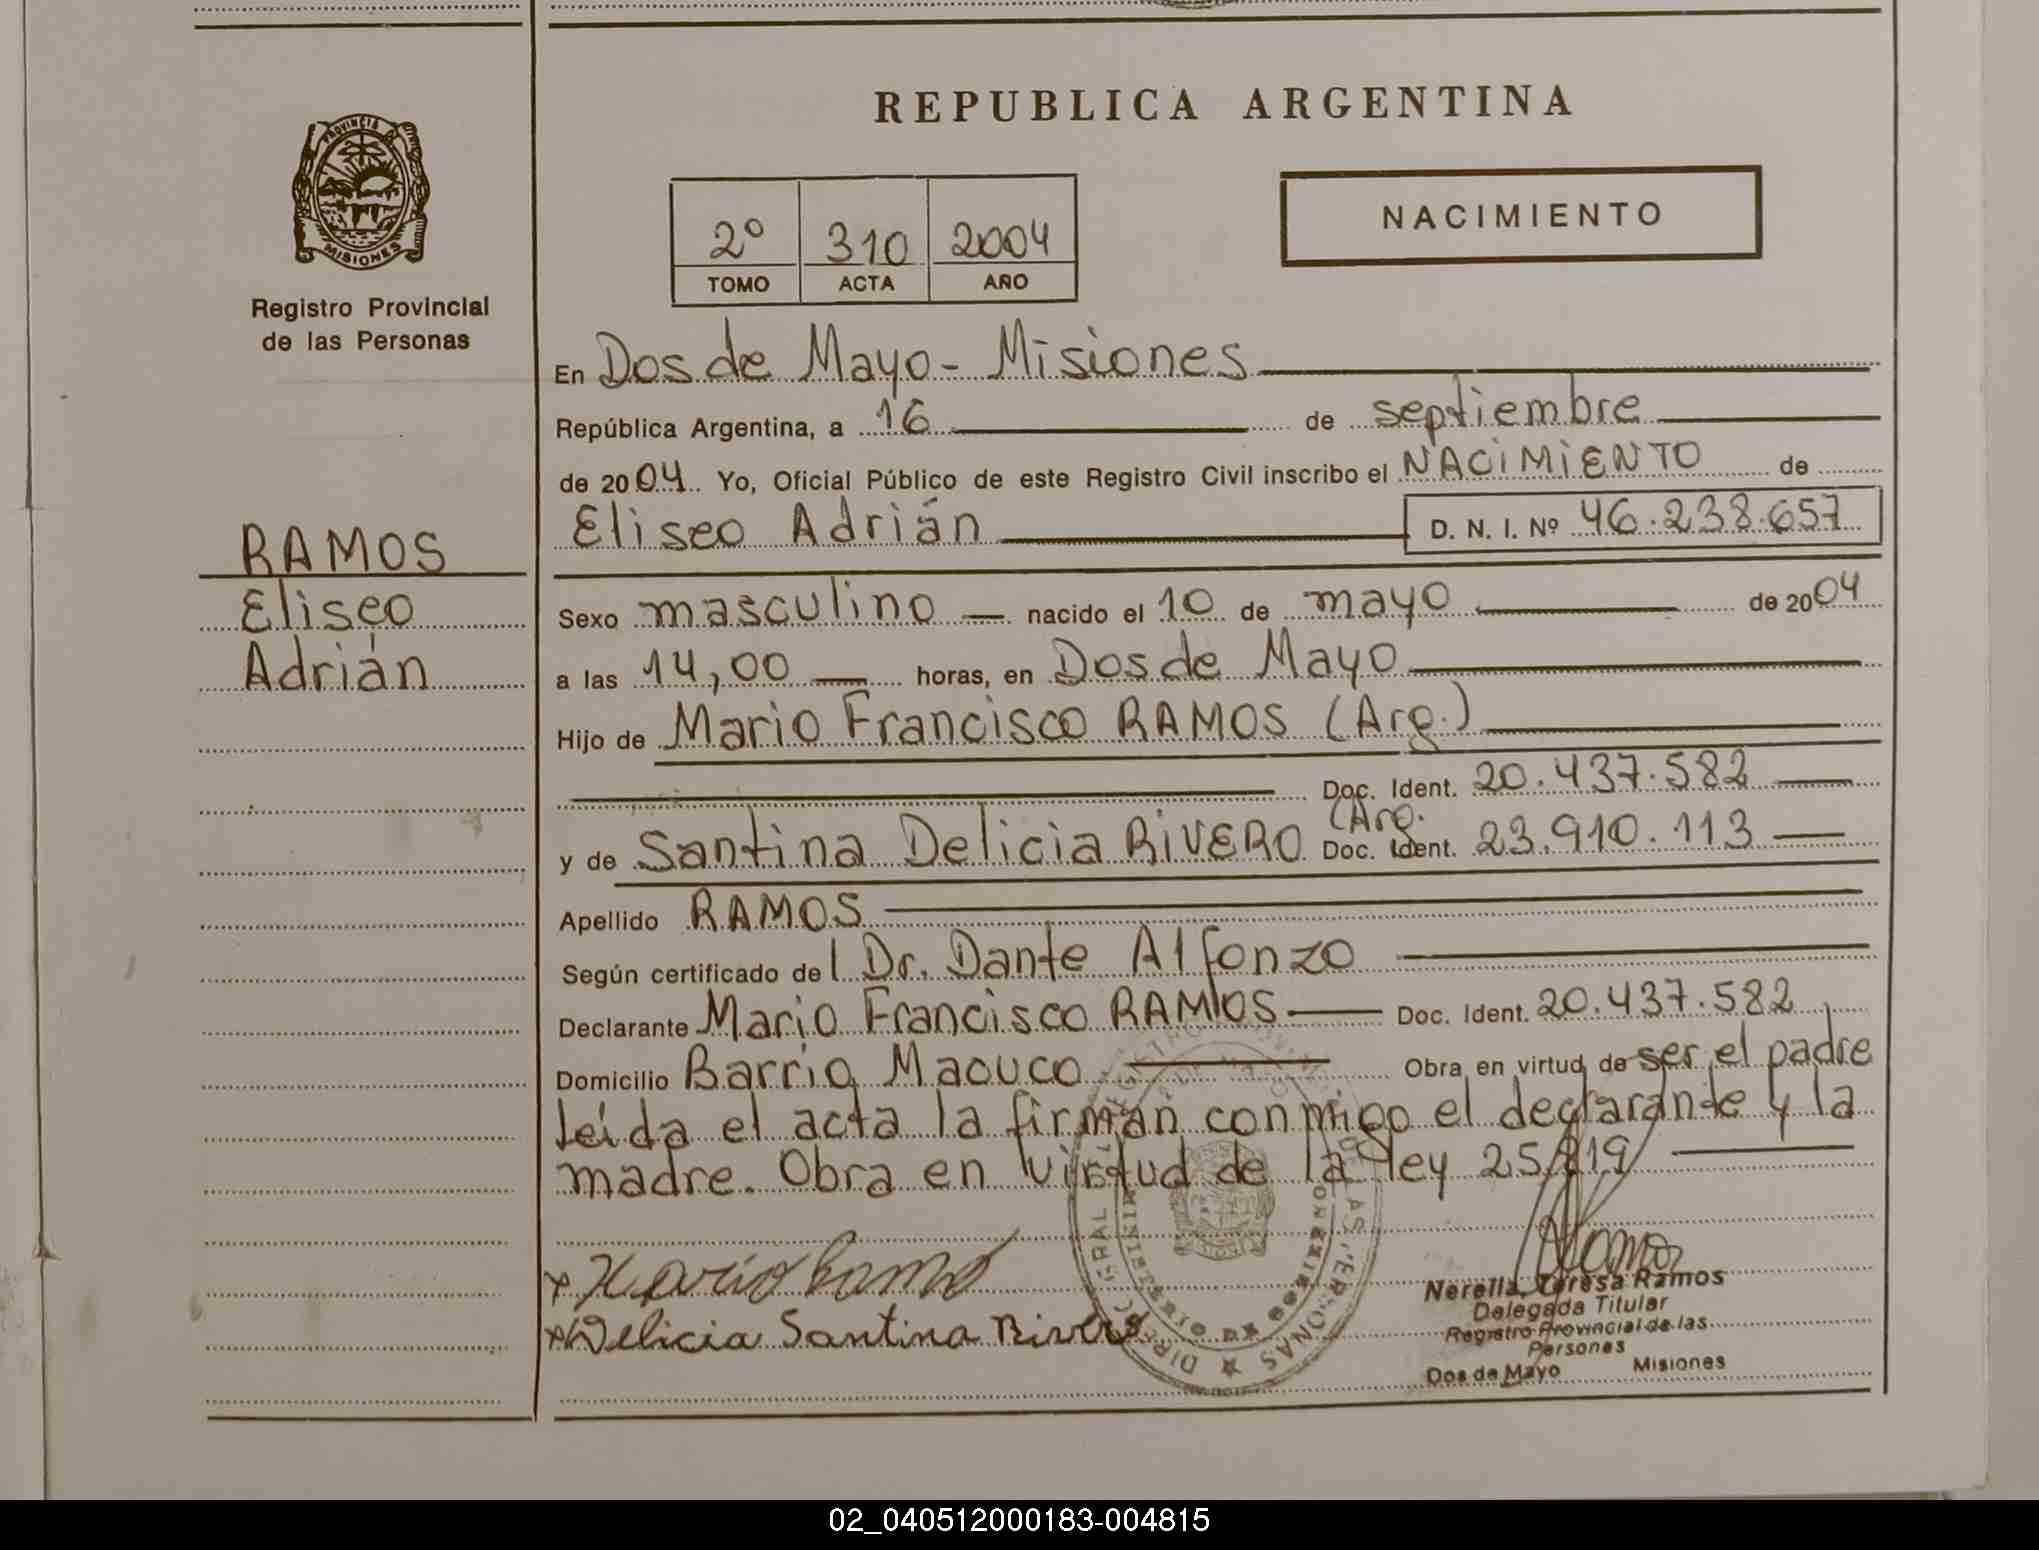 REPUBLICA ARGENTINA
PROVINCIA DE
MISIONES
Registro Provincial
de las Personas
NACIMIENTO
2º 310 2004
TOMO ACTA AÑO
En Dos de Mayo - Misiones
República Argentina, a 16 de septiembre
de 2004 Yo, Oficial Público de este Registro Civil inscribo el NACIMIENTO de
Eliseo Adrián D. N. I. Nº 46.238.657
RAMOS
Eliseo
Adrián
Sexo masculino nacido el 10 de mayo de 2004
a las 14,00 horas, en Dos de Mayo
Hijo de Mario Francisco RAMOS (Arg.)
Doc. Ident. 20.437.582
(Arg.
y de Santina Delicia RIVERO Doc. Ident. 23.910.113
Apellido RAMOS
Según certificado del Dr. Dante Alfonzo
Declarante Mario Francisco RAMOS Doc. Ident. 20.437.582
Domicilio Barrio Macuco Obra en virtud de ser el padre
leída el acta la firman conmigo el declarante y la
madre. Obra en virtud de la ley 25.819
x Mario Ramos
x Delicia Santina Rivero
Nerella Teresa Ramos
Delegada Titular
Registro Provincial de las
Personas
Dos de Mayo Misiones
02_040512000183-004815